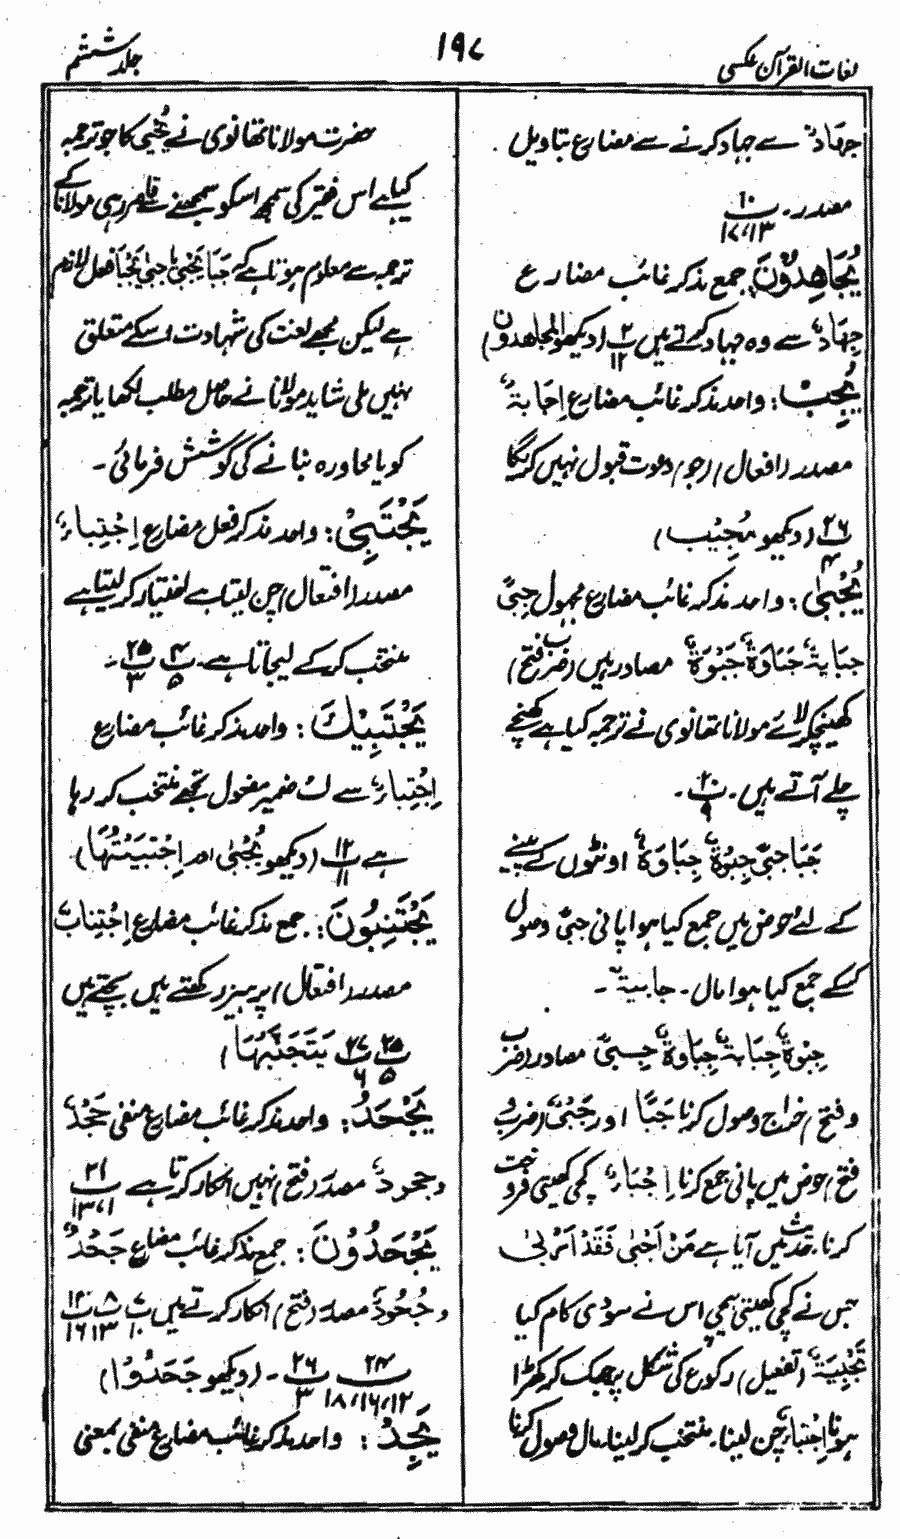 لغات القرآن عکسی
۱۹۷
جلد ششم
جِهَادٌ سے جہاد کرنے سے مضارع بتاویل
مصدر۔ ۱۰ ۱۷،۱۳
يُجَاهِدُوْنَ جمع مذکر غائب مضارع
جِهَادٌ سے وہ جہاد کرتے ہیں ۲ ۱۲ (دیکھو المجاهدون)
يُجِبْ: واحد مذکر غائب مضارع اِجَابَةٌ
مصدر (افعال) (جو) دعوت قبول نہیں کریگا
۲۶ ۴ (دیکھو مُجِيْب)
يُجْبٰى: واحد مذکر غائب مضارع مجہول جَبْىٌ
جِبَايَةٌ، جَبَاوَةٌ، جَبْوَةٌ مصادر ہیں (ضرب فتح)
کھینچ کر لائے مولانا تھانوی نے ترجمہ کیا ہے کھنچے
چلے آتے ہیں۔ ۲۰ ۹۔
جَبَا جَبْىٌ جِبْوَةٌ جِبَاوَةٌ اونٹوں کے پینے
کے لئے حوض میں جمع کیا ہوا پانی جَبْىٌ وصول
کرکے جمع کیا ہوا مال۔ جابية۔
جِبْوَةٌ جِبَايَةٌ جِبَاوَةٌ جَبْىٌ مصادر (ضرب
و فتح) خراج وصول کرنا جَبًا اور جَبْىٌ (ضرب و
فتح) حوض میں پانی جمع کرنا اِجْبَاءٌ کچی کھیتی فروخت
کرنا۔ حدیث میں آیا ہے مَنْ اَجْبٰى فَقَدْ اَرْبٰى
جس نے کچی کھیتی بیچی اس نے سودی کام کیا
تَجْبِيَةٌ (تفعیل) رکوع کی شکل پر جھک کر کھڑا
ہونا اِجْتِبَاءٌ چن لینا۔ منتخب کر لینا مال وصول کرنا
حضرت مولانا تھانوی نے يُجْبٰى کا جو ترجمہ
کیا ہے اس فقیر کی سمجھ اسکو سمجھنے سے قاصر رہی مولانا کے
ترجمہ سے معلوم ہوتا ہے کہ جَبَا يَجْبِىْ یا جَبٰى يَجْبَا فعل لازم
ہے لیکن مجھے لغت کی شہادت اسکے متعلق
نہیں ملی شاید مولانا نے حاصل مطلب لکھا یا ترجمہ
کو با محاورہ بنانے کی کوشش فرمائی۔
يَجْتَبِىْ: واحد مذکر فعل مضارع اِجْتِبَاءٌ
مصدر (افتعال) چن لیتا ہے اختیار کر لیتا ہے
منتخب کر کے لیجاتا ہے۔ ۴ ۵ ۲۵ ۳۔
يَجْتَبِيْكَ: واحد مذکر غائب مضارع
اِجْتِبَاءٌ سے ك ضمیر مفعول تجھے منتخب کر رہا
ہے ۱۲ ۱۱ (دیکھو يُجْبٰى اور اِجْتَبَيْتَهَا)
يَجْتَنِبُوْنَ: جمع مذکر غائب مضارع اِجْتِنَابٌ
مصدر (افتعال) پرہیز رکھتے ہیں بچتے ہیں
۲۵ ۵ ۲۷ ۶ يَتَجَنَّبُهَا)
يَجْحَدُ: واحد مذکر غائب مضارع منفی جَحْدٌ
وجحودٌ مصدر (فتح) نہیں انکار کرتا ہے ۲۱ ۱۳،۱
يَجْحَدُوْنَ: جمع مذکر غائب مضارع جَحْدٌ
وجُحُوْدٌ مصدر (فتح) انکار کرتے ہیں ۷ ۱۰ ۸ ۱۳ ۱۴ ۱۶
۲۴ ۱۸،۱۶،۱۲ ۲۶ ۳۔ (دیکھو جَحَدُوْا)
يَجِدُ: واحد مذکر غائب مضارع منفی بمعنی